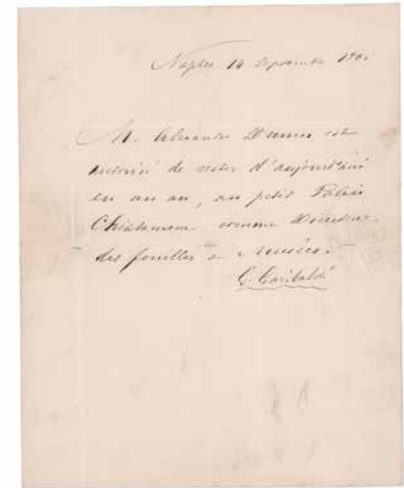 Naples 14 Septembre 1860
M. Alexandre Dumas est
autorisé de rester d'aujourd'hui
en un an, au petit Palais
Chiatamone comme Directeur
des fouilles & Musées.
G. Garibaldi